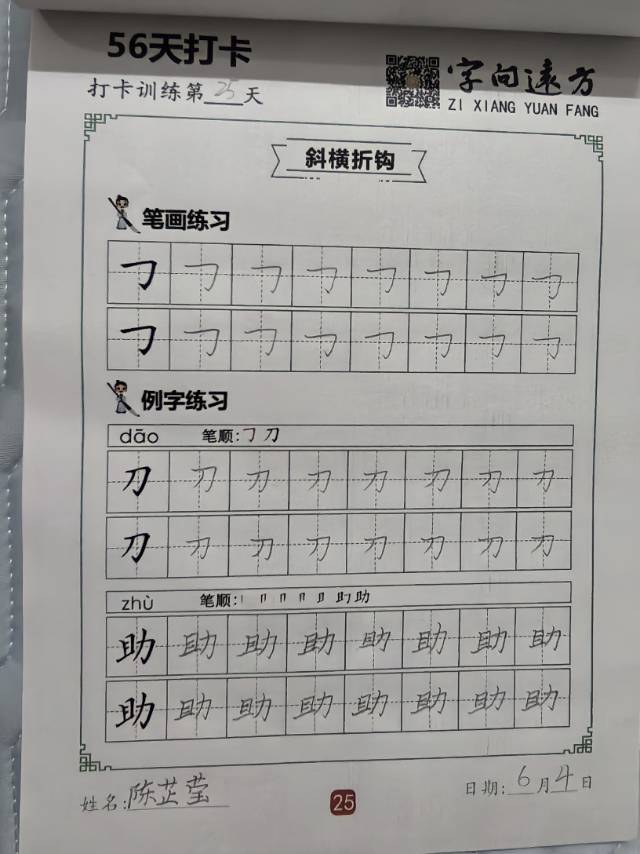 56天打卡
打卡训练第25天
字向远方
ZI XIANG YUAN FANG
斜横折钩
笔画练习
㇆ ㇆ ㇆ ㇆ ㇆ ㇆ ㇆ ㇆
㇆ ㇆ ㇆ ㇆ ㇆ ㇆ ㇆ ㇆
例字练习
dāo 笔顺:㇆ 刀
刀 刀 刀 刀 刀 刀 刀 刀
刀 刀 刀 刀 刀 刀 刀 刀
zhù 笔顺:
助 助 助 助 助 助 助 助
助 助 助 助 助 助 助 助
姓名:陈芷莹
25
日期:6月4日